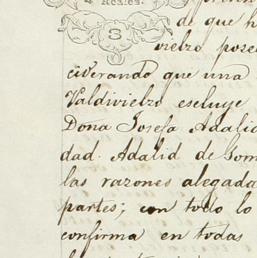 Reales.
de que h
S
vielzo pose
civerando que una
Valdivielzo escluye
Doña Josefa Adalid
dad. Adalid de Gom
las razones alegada
partes; con todo lo
confirma en todas